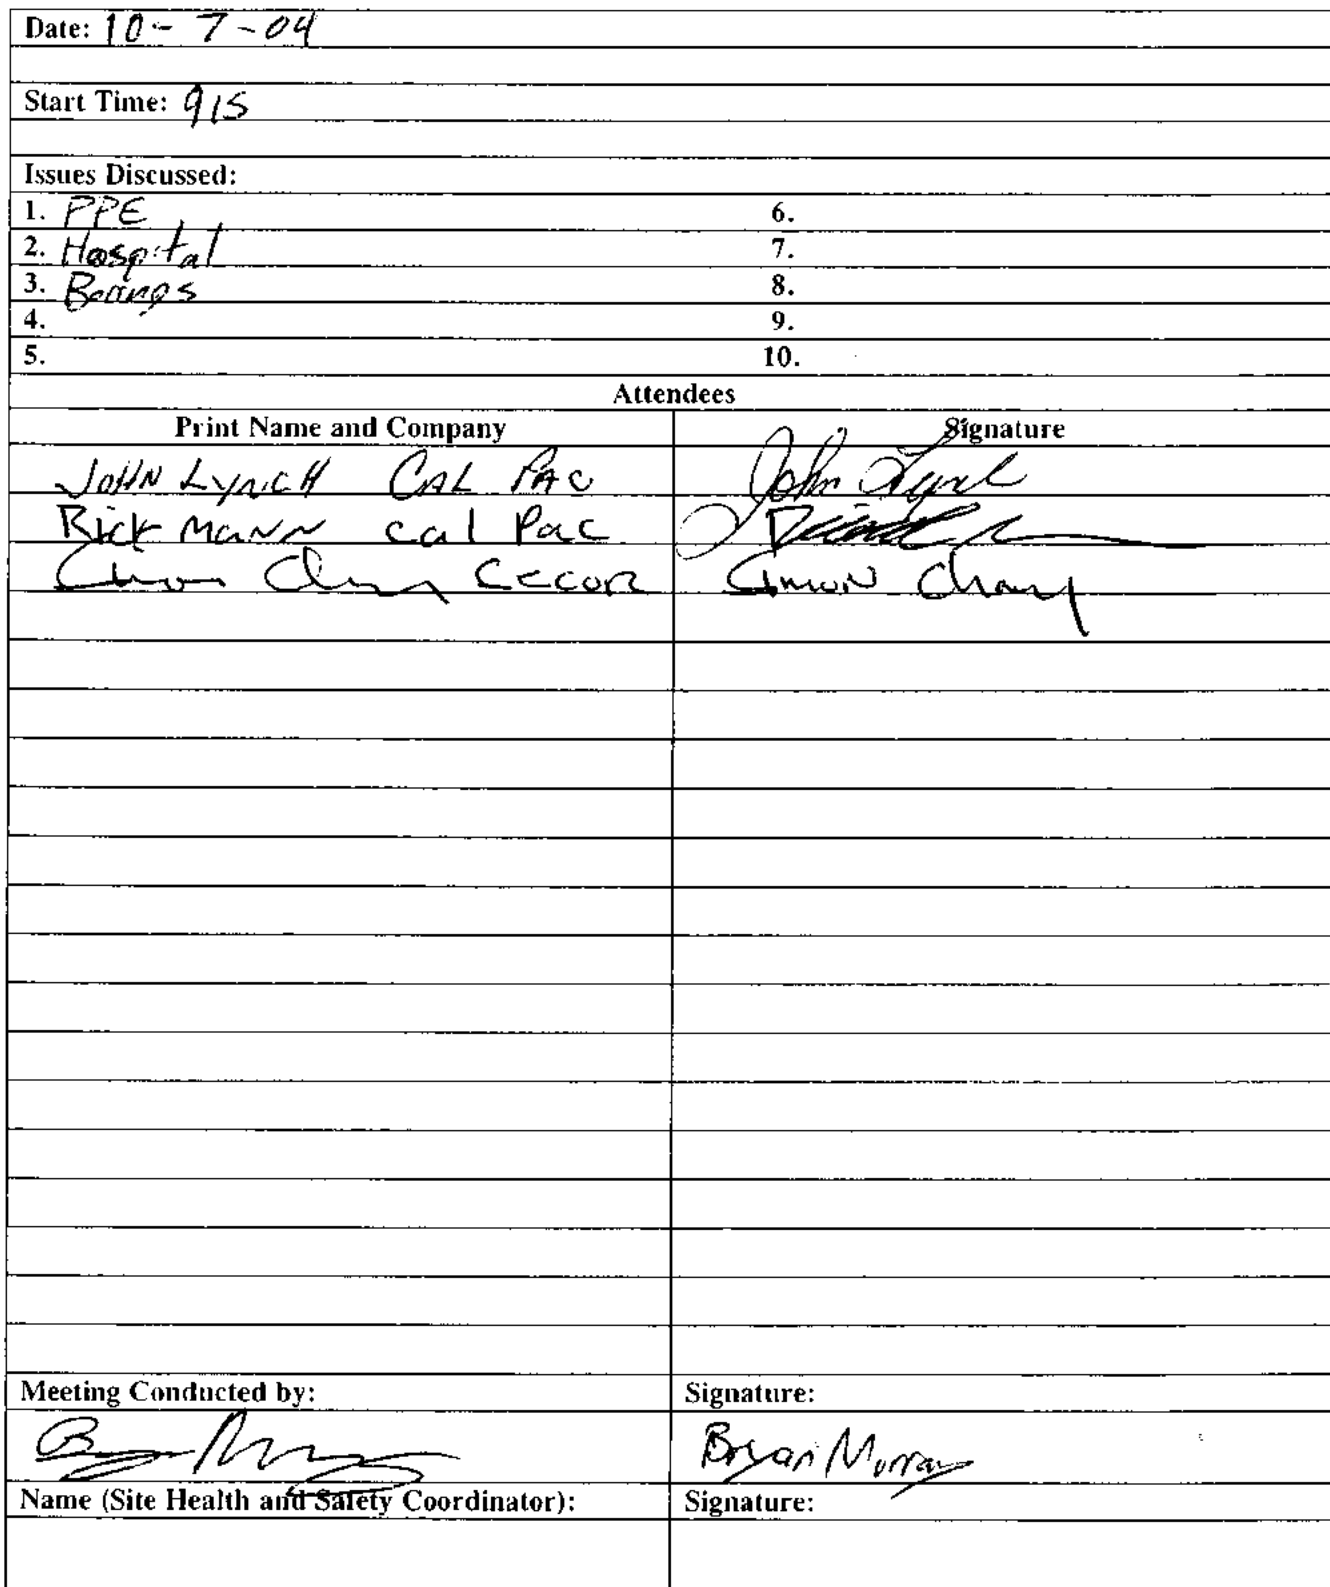 Date: 10-7-04
Start Time: 915
Issues Discussed:
1. PPE 6.
2. Hospital 7.
3. Borings 8.
4. 9.
5. 10.
Attendees
Print Name and Company Signature
JOHN LYNCH CAL PAC John Lynch
Rick Mann cal Pac
Simon Chang
Meeting Conducted by: Signature:
Bryan Murray
Name (Site Health and Safety Coordinator): Signature: